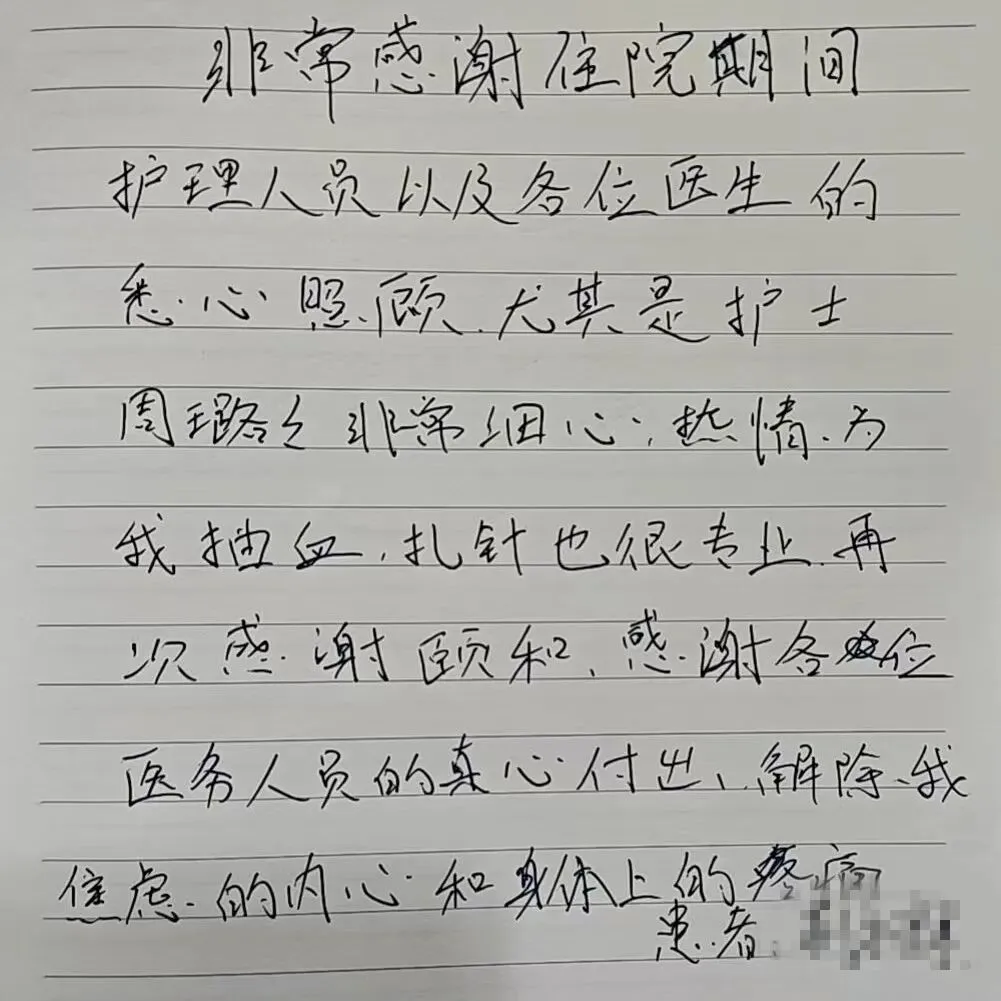 非常感谢住院期间
护理人员以及各位医生的
悉心照顾.尤其是护士
周璐々非常细心,热情.为
我抽血,扎针也很专业.再
次感谢颐和,感谢各位
医务人员的真心付出,解除我
焦虑的内心和身体上的疼痛
患者: